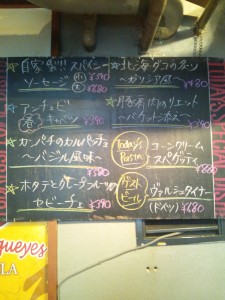 ☆自家製!! スパイシー
ソーセージ 小 ¥390
大 ¥680
☆アンチョビ
春キャベツ ¥390
☆カンパチのカルパッチョ
〜バジル風味〜 ¥580
☆ホタテとグレープフルーツの
セビーチェ ¥390
☆北海ダコの
〜ガリシア風〜 ¥680
☆豚肉のリエット
〜バケットに添え〜 ¥390
Today's Pasta
コーンクリーム
スパゲッティ ¥880
ゲストビール
ヴァルシュタイナー
(ドイツ) ¥680
queyes
LA